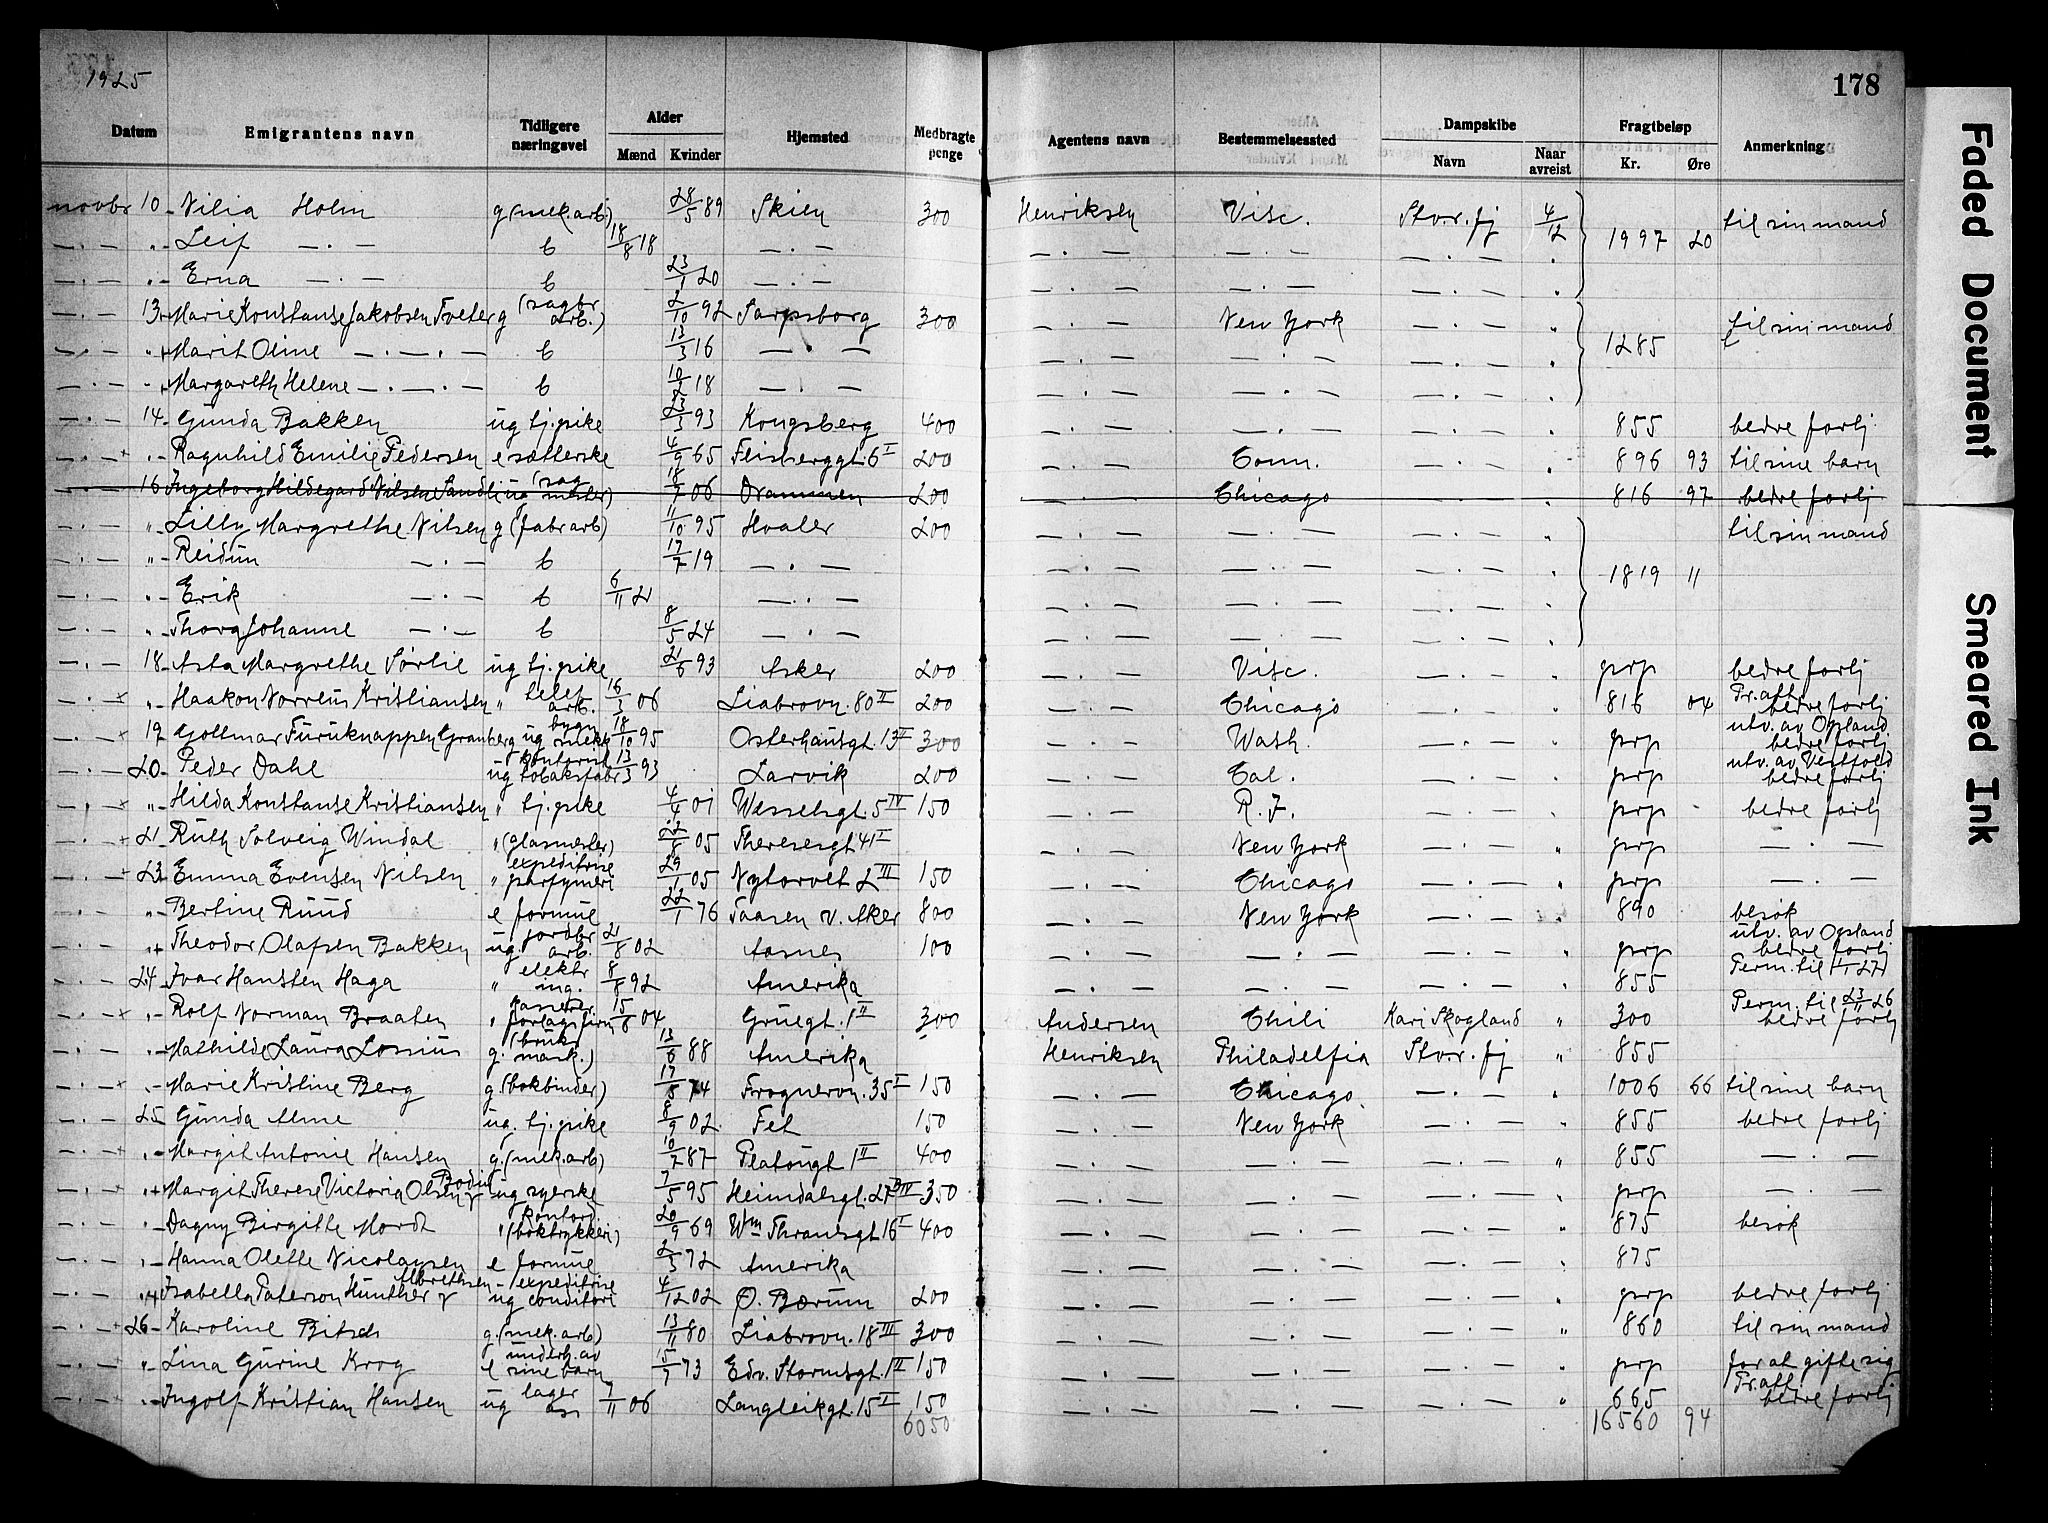 1925
178
Datum Emigrantens navn Tidligere næringsvei Alder Mænd Kvinder Hjemsted Medbragte penge Agentens navn Bestemmelsessted Dampskibe Navn Naar avreist Fragtbeløp Kr. Øre Anmerkning
novbr 10 Nilia Holm g (mek. arb.) 28/5 89 Skien 300 Henriksen Visc. Stvr. fj 4/12 1997 20 til sin mand
— . — „ Leif — . — b 18/8 18 — . — — . — — . — — . — „
— . — „ Erna — . — b 23/1 20 — . — — . — — . — — . — „
— . — 13 Marie Konstanse Jakobsen Tveter g (sagbr arb.) 2/10 92 Sarpsborg 300 — . — New York — . — „ 1285 til sin mand
— . — „ Marit Oline — . — . — b 13/3 16 — . — — . — — . — — . — „
— . — „ Margareth Helene — . — . — b 10/2 18 — . — — . — — . — — . — „
— . — 14 Gunda Bakken ug tj. pike 23/3 93 Kongsberg 400 — . — — . — — . — „ 855 bedre forhj
— . — „ Ragnhild Emilie Pedersen e sætterske 4/9 65 Fleisberggt. 6 I 200 — . — Conn. — . — „ 896 93 til sine barn
— . — 16 Ingeborg Hildegard Nilsen Sandli ug (sag mester) 18/7 06 Drammen 200 — . — Chicago — . — „ 816 97 bedre forhj
— . — „ Lilly Margrethe Nilsen g (fabr arb) 11/10 95 Hvaler 200 — . — — . — — . — „ 1819 11 til sin mand
— . — „ Reidun — . — b 17/7 19 — . — — . — — . — — . — „
— . — „ Erik — . — b 6/11 21 — . — — . — — . — — . — „
— . — „ Thorg Johanne — . — b 8/5 24 — . — — . — — . — — . — „
— . — 18 Asta Margrethe Sørlie ug tj. pike 21/6 93 Asker 200 — . — Visc. — . — „ prp bedre forhj
— . — „ Haakon Norreus Kristiansen „ telef. arb. 16/3 06 Liabrovn. 80 II 200 — . — Chicago — . — „ 816 04 Fr. att. bedre forhj
— . — 19 Gollmar Furuknappen Granberg ug bygn snekk 18/10 95 Osterhausgt. 13 II 300 — . — Wash. — . — „ prp utv. av Opland bedre forhj
— . — 20 Peder Dahl ug kontorist tobaksfabr 13/3 93 Larvik 200 — . — Cal. — . — „ prp utv. av Vestfold bedre forhj
— . — „ Hilda Konstanse Kristiansen „ tj. pike 4/4 01 Wesselsgt. 5 IV 150 — . — R. I. — . — „ prp bedre forhj
— . — 21 Ruth Solveig Windal „ (glasmester) 22/8 05 Theresesgt 41 I — . — New York — . — „ prp — . —
— . — 23 Emma Evensen Nilsen „ expeditrise parfymeri 29/1 05 Nytorvet 2 III 150 — . — Chicago — . — „ prp — . —
— . — „ Bertine Ruud e formue 22/1 76 Taasen v. Aker 800 — . — New York — . — „ 890 besøk
— . — „ Theodor Olafsen Bakken ug. jordbr arb. 21/8 02 Aasnes 100 — . — — . — — . — „ prp utv. av Opland bedre forhj
— . — 24 Ivar Hansten Haga „ elektr ing. 8/8 92 Amerika — . — — . — — . — „ 855 Perm. til 1/1 27
— . — „ Rolf Norman Braaten „ kaserer. forlagsfirm 15/8 04 Gruegt. 1 II 300 Andersen Chili Kari Skogland „ 300 Perm. til 23/11 26 bedre forhj
— . — „ Mathilde Laura Lossius g. (bruks mask.) 13/6 88 Amerika Henriksen Philadelfia Stvr. fj „ 855
— . — „ Marie Kristine Berg g. (bokbinder) 17/8 74 Frognervn. 35 I 150 — . — Chicago. — . — „ 1006 66 til sine barn
— . — 25 Gunda Alme ug. tj. pike 8/9 02 Fet 150 — . — New York — . — „ 855 bedre forhj
— . — „ Margit Antonie Hansen g. (mek. arb) 10/7 87 Platougt 1 II 400 — . — — . — — . — „ 855 — . —
— . — „ Margit Therese Victoria Olsen Bodin ug syerske 7/5 95 Heimdalsgt. 27 B IV 350 — . — — . — — . — „ prp — . —
— . — „ Dagny Birgitte Mordt „ kontord. (boktrykkeri) 20/9 69 Wm Thranesgt 16 I 400 — . — — . — — . — „ 875 besøk
— . — „ Hanna Olette Nicolaysen e formue 2/3 72 Amerika — . — — . — — . — „ 875
— . — „ Isabella Paterson Hunther Albrethsen ug expeditrise conditori 4/12 02 Ø. Bærum 200 — . — — . — — . — „ prp bedre forhj
— . — 26 Karoline Bitsch g. (mek. arb) 13/11 80 Liabrovn. 18 III 300 — . — — . — — . — „ 860 til sin mand
— . — „ Lina Gurine Krog e underh. av sine barn 15/7 73 Edv. Stormsgt. 1 II 150 — . — — . — — . — „ prp for at gifte sig
— . — „ Ingolf Kristian Hansen ug lager ass 7/11 06 Langleikgt. 15 I 150 — . — — . — — . — „ 665 Fr. att. bedre forhj
6050 16560 94
Faded Document
Smeared Ink